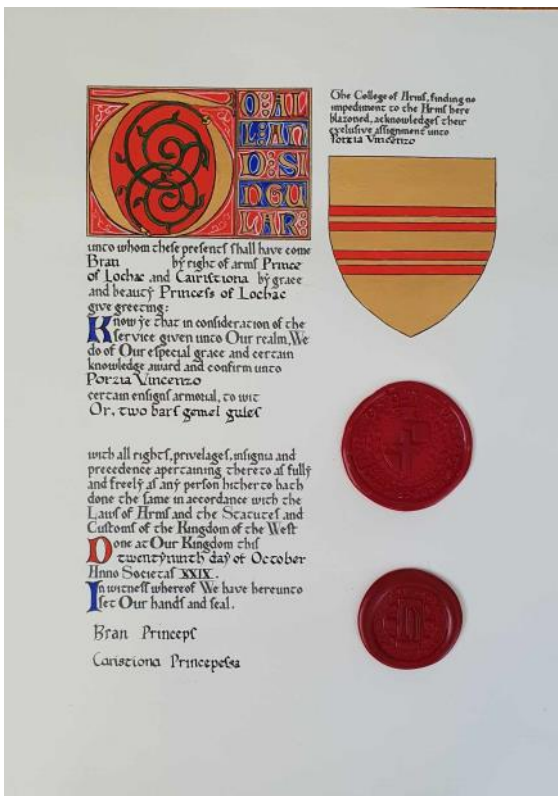 TO:AL
L:AN
D:SI
NGU
LAR:
unto whom these presents shall have come
Bran by right of arms Prince
of Lochac and Cairistiona by grace
and beauty Princess of Lochac
give greeting:
Know ye that in consideration of the
service given unto Our realm, We
do of Our especial grace and certain
knowledge award and confirm unto
Porzia Vincenzo
certain ensigns armorial, to wit
Or, two bars gemel gules
with all rights, privelages, insignia and
precedence apertaining thereto as fully
and freely as any person hitherto hath
done the same in accordance with the
Laws of Arms and the Statutes and
Customs of the Kingdom of the West
Done at Our Kingdom this
twentyninth day of October
Anno Societas XXIX.
In witness whereof We have hereunto
set Our hands and seal.
Bran Princeps
Caristiona Princepessa
The College of Arms, finding no
impediment to the Arms here
blazoned, acknowledges their
exclusive assignment unto
Porzia Vincenzo